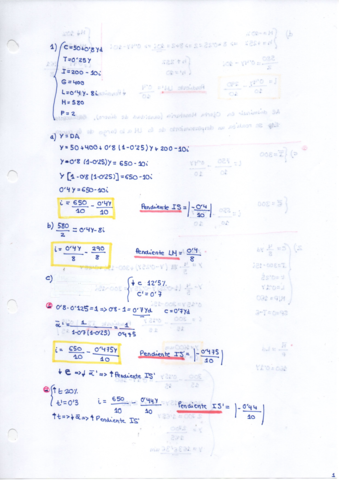 1) C=50+0'8Yd
T=0'25Y
I=200-10i
G=400
L=0'4Y-8i
M=580
P=2
a) Y=DA
Y=50+400+0'8(1-0'25)Y+200-10i
Y-0'8(1-0'25)Y=650-10i
Y[1-0'8(1-0'25)]=650-10i
0'4Y=650-10i
i=650/10-0'4Y/10 Pendiente IS=|-0'4/10|
b) 580/2=0'4Y-8i
i=0'4Y/8-290/8 Pendiente LM=0'4/8
c) ↓c 12'5%
C'=0'7
0'8·0'125=1=>0'8-1=0'7Yd c=0'7Yd
ᾱ'=1/1-0'7(1-0'25)=1/0'475
i=650/10-0'475Y/10 Pendiente IS'=|-0'475/10|
↓c=>↓ᾱ'=>↑Pendiente IS'
↑t 20%
t'=0'3 i=650/10-0'44Y/10 Pendiente IS'=|-0'44/10|
↑t=>↓ᾱ=>↑Pendiente IS
1